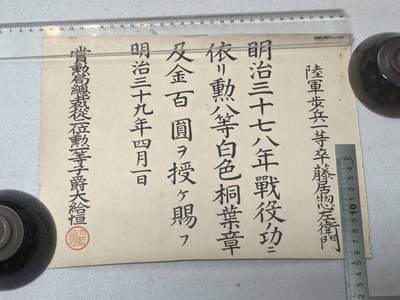 陸軍歩兵一等卒藤居惣左衛門
明治三十七八年戰役ノ功ニ
依リ勲八等白色桐葉章
及金百圓ヲ授ケ賜フ
明治三十九年四月一日
賞勲局總裁從二位勲一等子爵大給恒